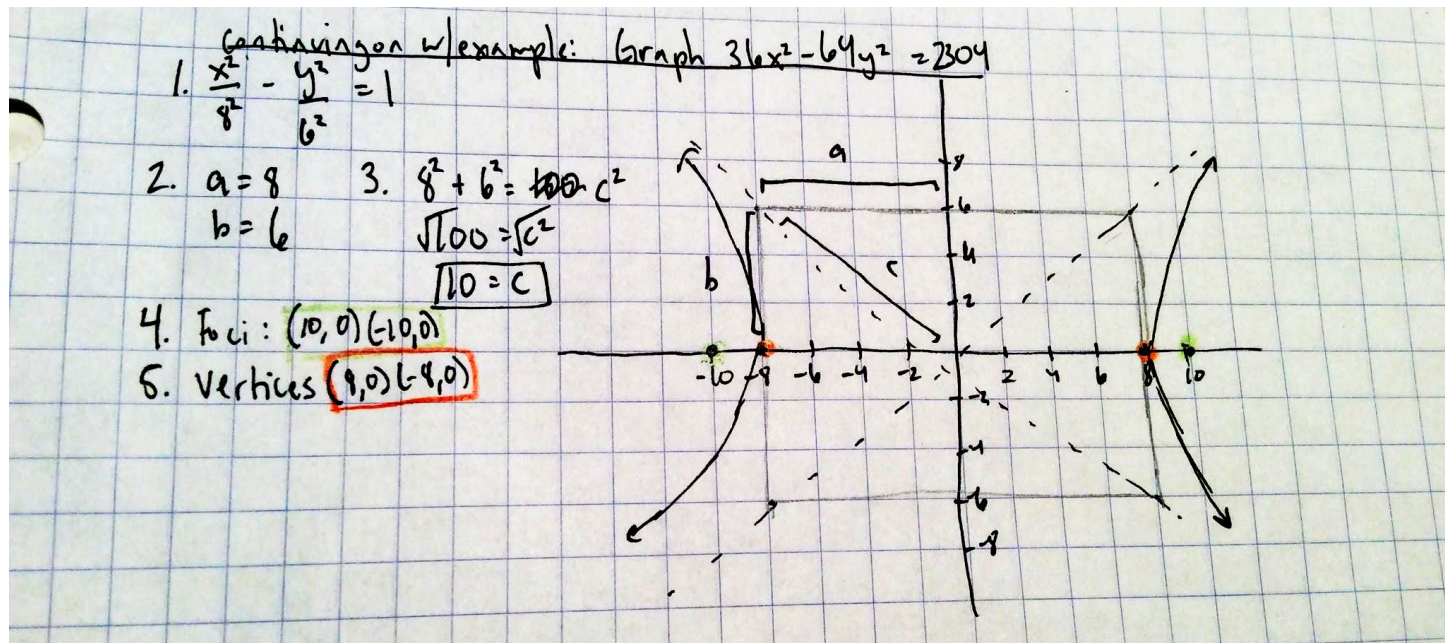 Continuing on w/example: Graph 36x² - 64y² = 2304
1. x²/8² - y²/6² = 1
2. a = 8
b = 6
3. 8² + 6² = c²
√100 = √c²
10 = c
4. Foci: (10,0) (-10,0)
5. Vertices (8,0) (-8,0)
a
b
c
8
6
4
2
-10 -8 -6 -4 -2 2 4 6 8 10
-2
-4
-6
-8